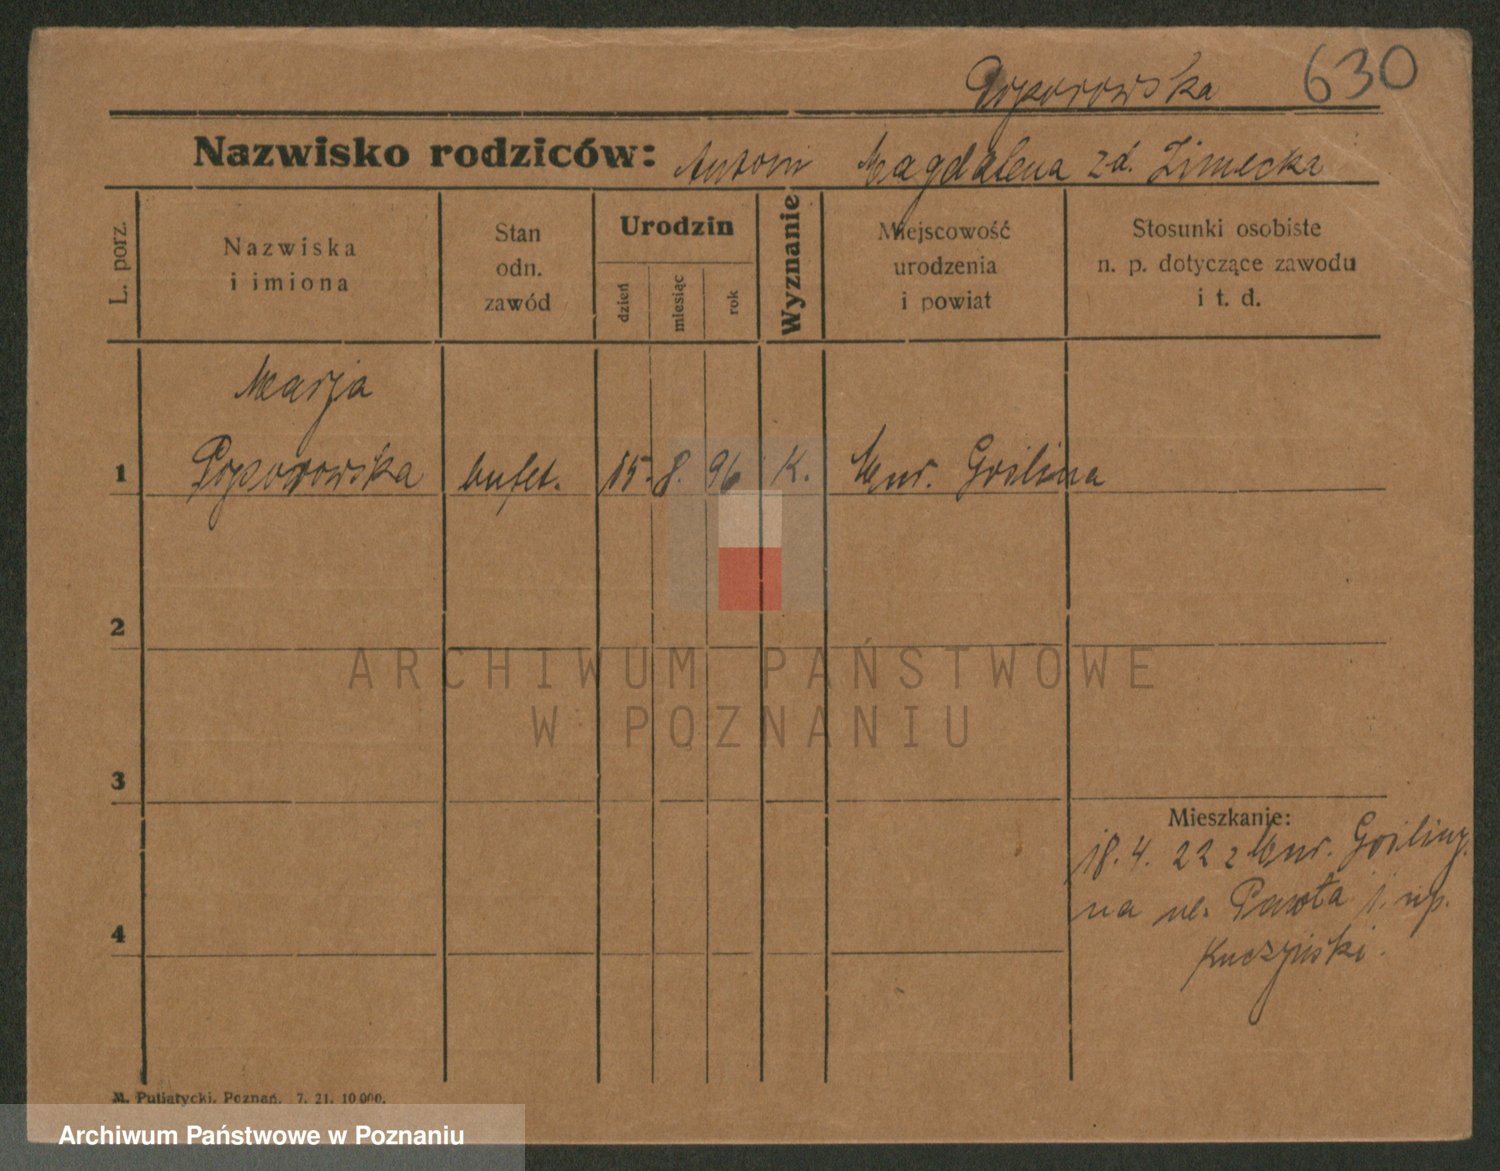 Poporowska 630
Nazwisko rodziców: Antoni Magdalena zd. Zimecka
L. porz.
Nazwiska
i imiona
Stan
odn.
zawód
Urodzin
dzień
miesiąc
rok
Wyznanie
Miejscowość
urodzenia
i powiat
Stosunki osobiste
n. p. dotyczące zawodu
i t. d.
Marja
1 Poporowska bufet. 15. 8. 96 K. Mur. Goślina
2
3
Mieszkanie:
18. 4. 22 z Mur. Gośliny.
na ul. Pawła 1. np.
4
Kuczyński.
M. Putiatycki, Poznań. 7. 21. 10 000.
ARCHIWUM PAŃSTWOWE
W POZNANIU
Archiwum Państwowe w Poznaniu